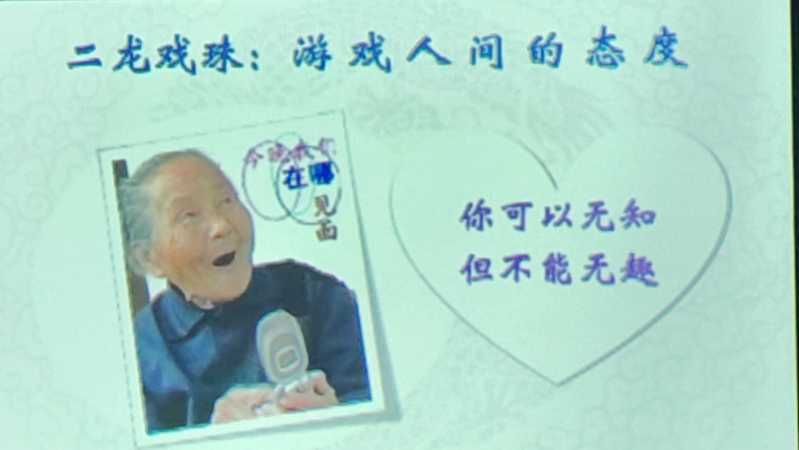 二龙戏珠：游戏人间的态度
今晚我们
在哪
见面
你可以无知
但不能无趣